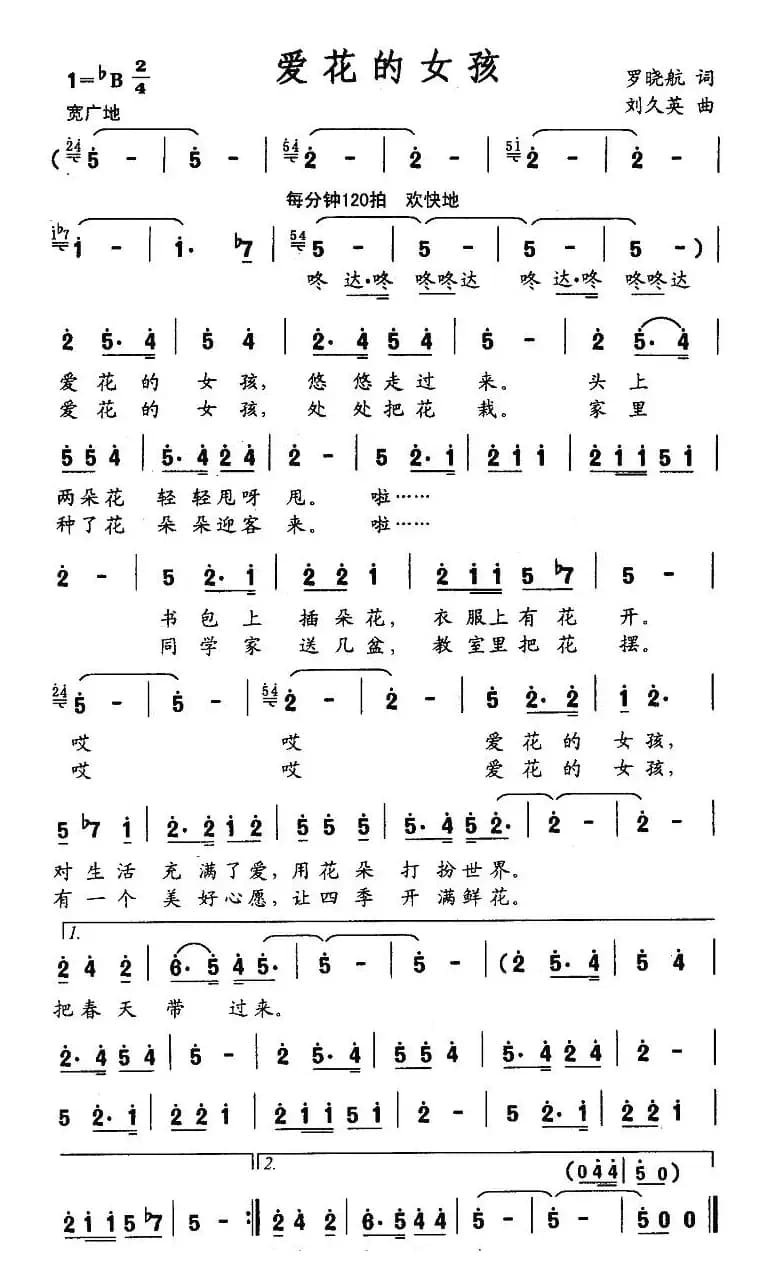 爱花的女孩
1=♭B 2/4
罗晓航 词
宽广地
刘久英 曲
( 24 5 - | 5 - | 54 2 - | 2 - | 51 2 - | 2 - |
每分钟120拍 欢快地
1♭7 1 - | 1· ♭7 | 54 5 - | 5 - | 5 - | 5 - ) |
咚 达·咚 咚咚达 咚 达·咚 咚咚达
2 5·4 | 5 4 | 2·4 5 4 | 5 - | 2 5·4 |
爱花的 女孩, 悠悠走过 来。 头上
爱花的 女孩, 处处把花 栽。 家里
5 5 4 | 5·4 2 4 | 2 - | 5 2·1 | 2 1 1 | 2 1 1 5 1 |
两朵花 轻轻甩呀 甩。 啦……
种了花 朵朵迎客 来。 啦……
2 - | 5 2·1 | 2 2 1 | 2 1 1 5 ♭7 | 5 - |
书包上 插朵花, 衣服上有花 开。
同学家 送几盆, 教室里把花 摆。
24 5 - | 5 - | 54 2 - | 2 - | 5 2·2 | 1 2· |
哎 哎 爱花的 女孩,
哎 哎 爱花的 女孩,
5 ♭7 1 | 2·2 1 2 | 5 5 5 | 5·4 5 2· | 2 - | 2 - |
对生活 充满了爱, 用花朵 打扮世界。
有一个 美好心愿, 让四季 开满鲜花。
1.
2 4 2 | 6·5 4 5· | 5 - | 5 - | ( 2 5·4 | 5 4 |
把春天 带 过来。
2·4 5 4 | 5 - | 2 5·4 | 5 5 4 | 5·4 2 4 | 2 - |
5 2·1 | 2 2 1 | 2 1 1 5 1 | 2 - | 5 2·1 | 2 2 1 |
2. ( 0 4 4 | 5 0 )
2 1 1 5 ♭7 | 5 - :‖ 2 4 2 | 6·5 4 4 | 5 - | 5 - | 5 0 0 ‖